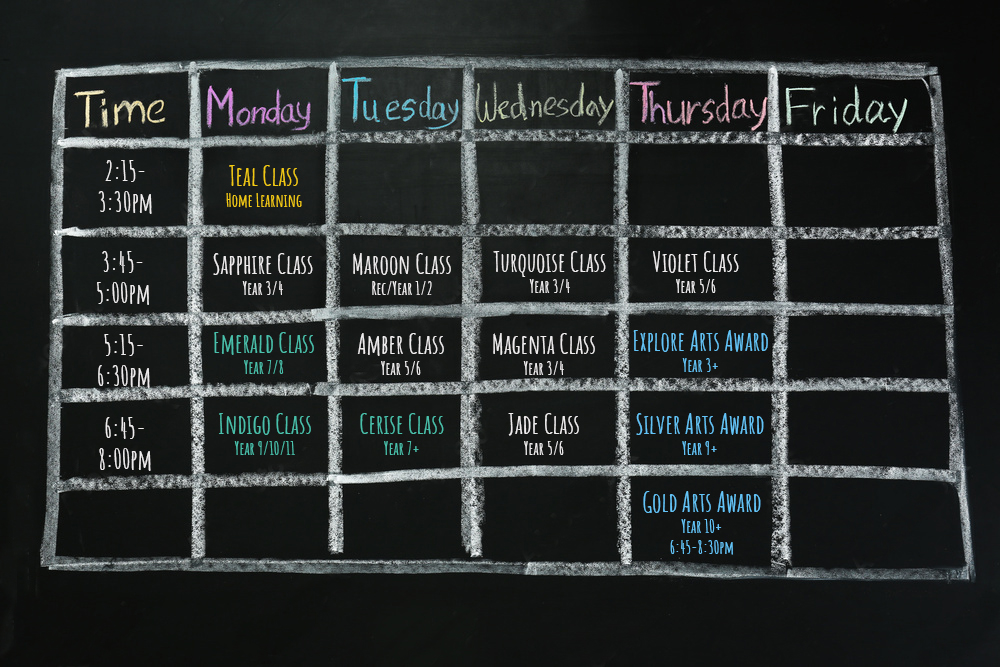 Time Monday Tuesday Wednesday Thursday Friday
2:15-
3:30pm
Teal Class
Home Learning
3:45-
5:00pm
Sapphire Class
Year 3/4
Maroon Class
Rec/Year 1/2
Turquoise Class
Year 3/4
Violet Class
Year 5/6
5:15-
6:30pm
Emerald Class
Year 7/8
Amber Class
Year 5/6
Magenta Class
Year 3/4
Explore Arts Award
Year 3+
6:45-
8:00pm
Indigo Class
Year 9/10/11
Cerise Class
Year 7+
Jade Class
Year 5/6
Silver Arts Award
Year 9+
Gold Arts Award
Year 10+
6:45-8:30pm